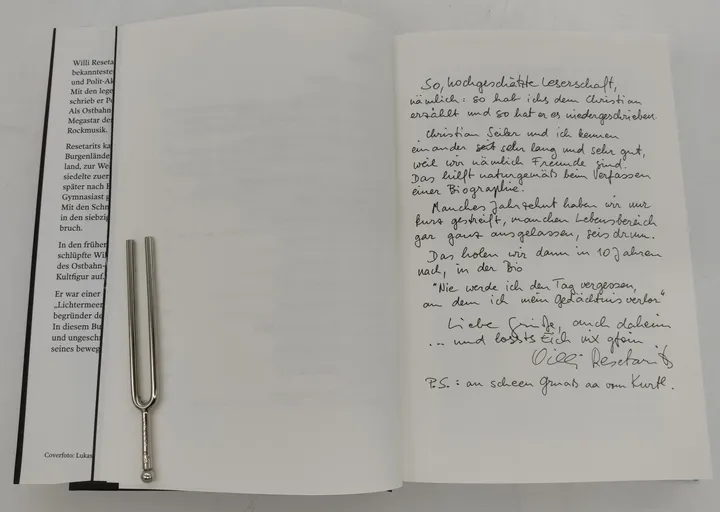 Willi Reseta
bekannteste
und Polit-Ak
Mit den lege
schrieb er Po
Als Ostbahn
Megastar de
Rockmusik.
Resetarits ka
Burgenlände
land, zur We
siedelte zuer
später nach F
Gymnasiast g
Mit den Schm
in den siebzig
bruch.
In den früher
schlüpfte Wil
des Ostbahn-
Kultfigur auf.
Er war einer
„Lichtermeer
begründer de
In diesem Bu
und ungesch
seines beweg
Coverfoto: Lukas
So, hochgeschätzte Leserschaft,
nämlich: so hab ichs dem Christian
erzählt und so hat er es niedergeschrieben.
Christian Seiler und ich kennen
einander seit sehr lang und sehr gut,
weil wir nämlich Freunde sind.
Das hilft naturgemäß beim Verfassen
einer Biographie.
Manches Jahrzehnt haben wir nur
kurz gestreift, manchen Lebensbereich
gar ganz ausgelassen, seis drum.
Das holen wir dann in 10 Jahren
nach, in der Bio
"Nie werde ich den Tag vergessen,
an dem ich mein Gedächtnis verlor"
Liebe Grüße, auch daheim
... und lossts Eich nix gfoin
Willi Resetarits
P.S.: an scheen Gruaß aa vom Kurtl.